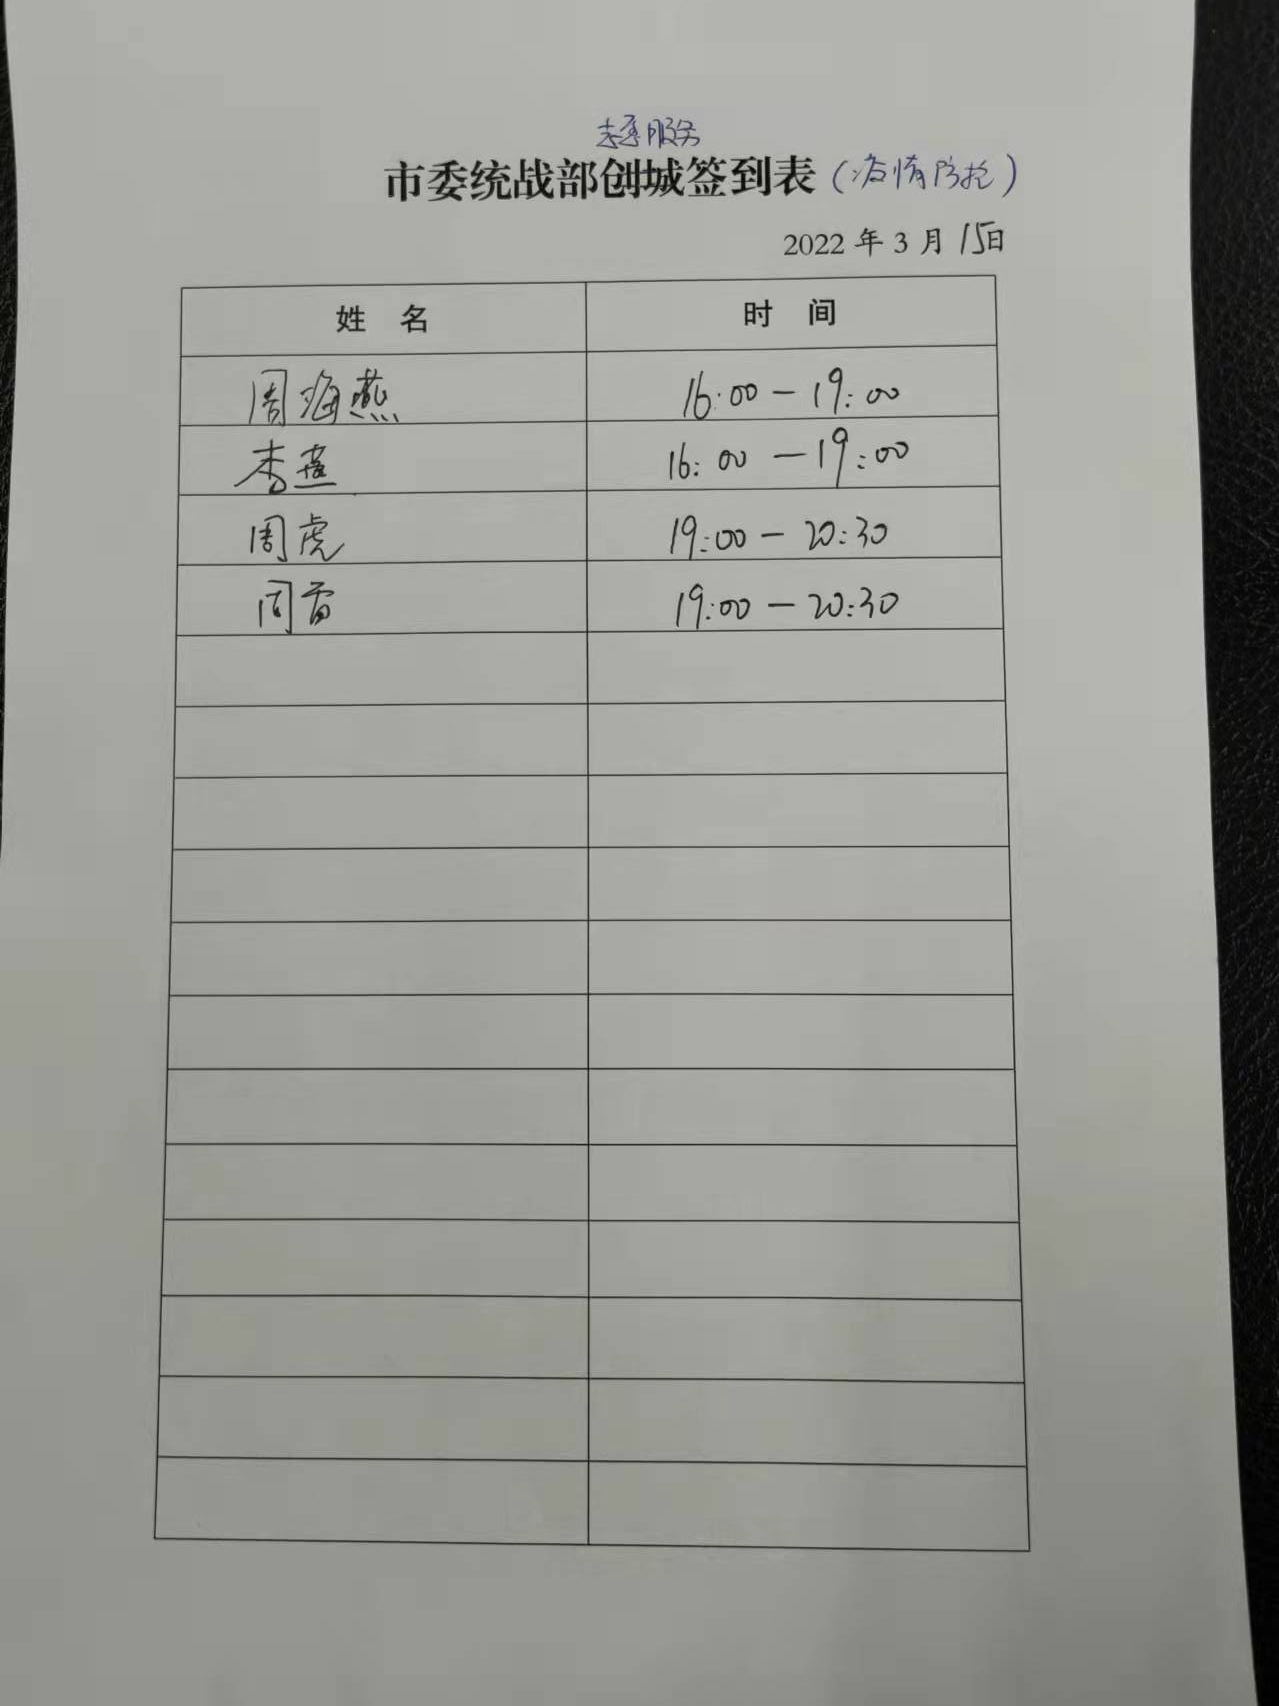 服务
市委统战部创城签到表(疫情防控)
2022年3月15日
姓 名 时 间
周海燕 16:00-19:00
李燕 16:00-19:00
周虎 19:00-20:30
周雷 19:00-20:30